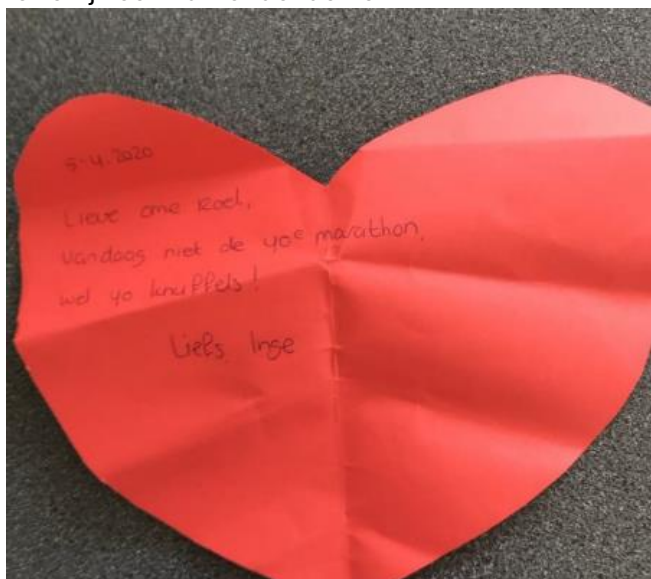 5-4-2020
Lieve ome Roel,
vandaag niet de 40e marathon,
wel 40 knuffels!
Liefs Inge